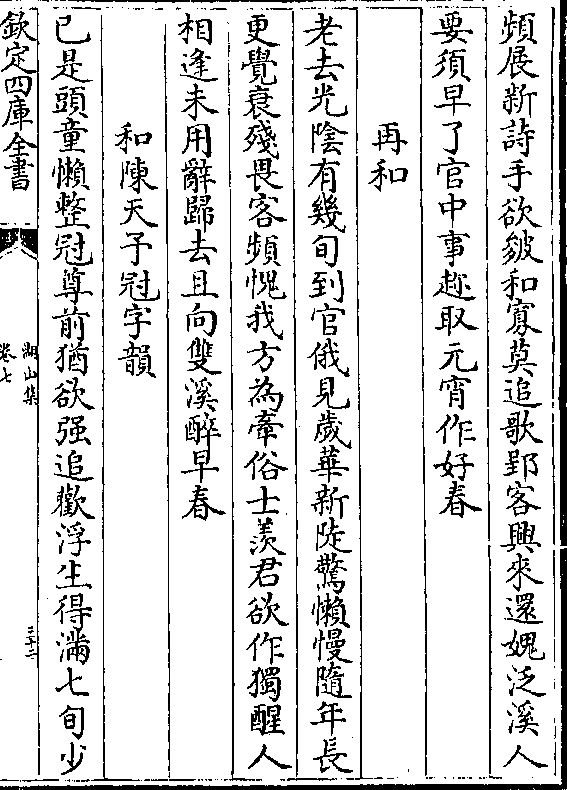 頻展新詩手欲皴和寡莫追歌郢客興來還媿泛溪人
要須早了官中事趂取元宵作好春
再和
老去光陰有幾旬到官俄見歲華新陡驚懶慢隨年長
更覺衰殘畏客頻愧我方為牽俗士羨君欲作獨醒人
相逢未用辭歸去且向雙溪醉早春
和陳天予冠字韻
已是頭童懶整冠尊前猶欲强追歡浮生得滿七旬少
欽定四庫全書
湖山集
卷七
三十二